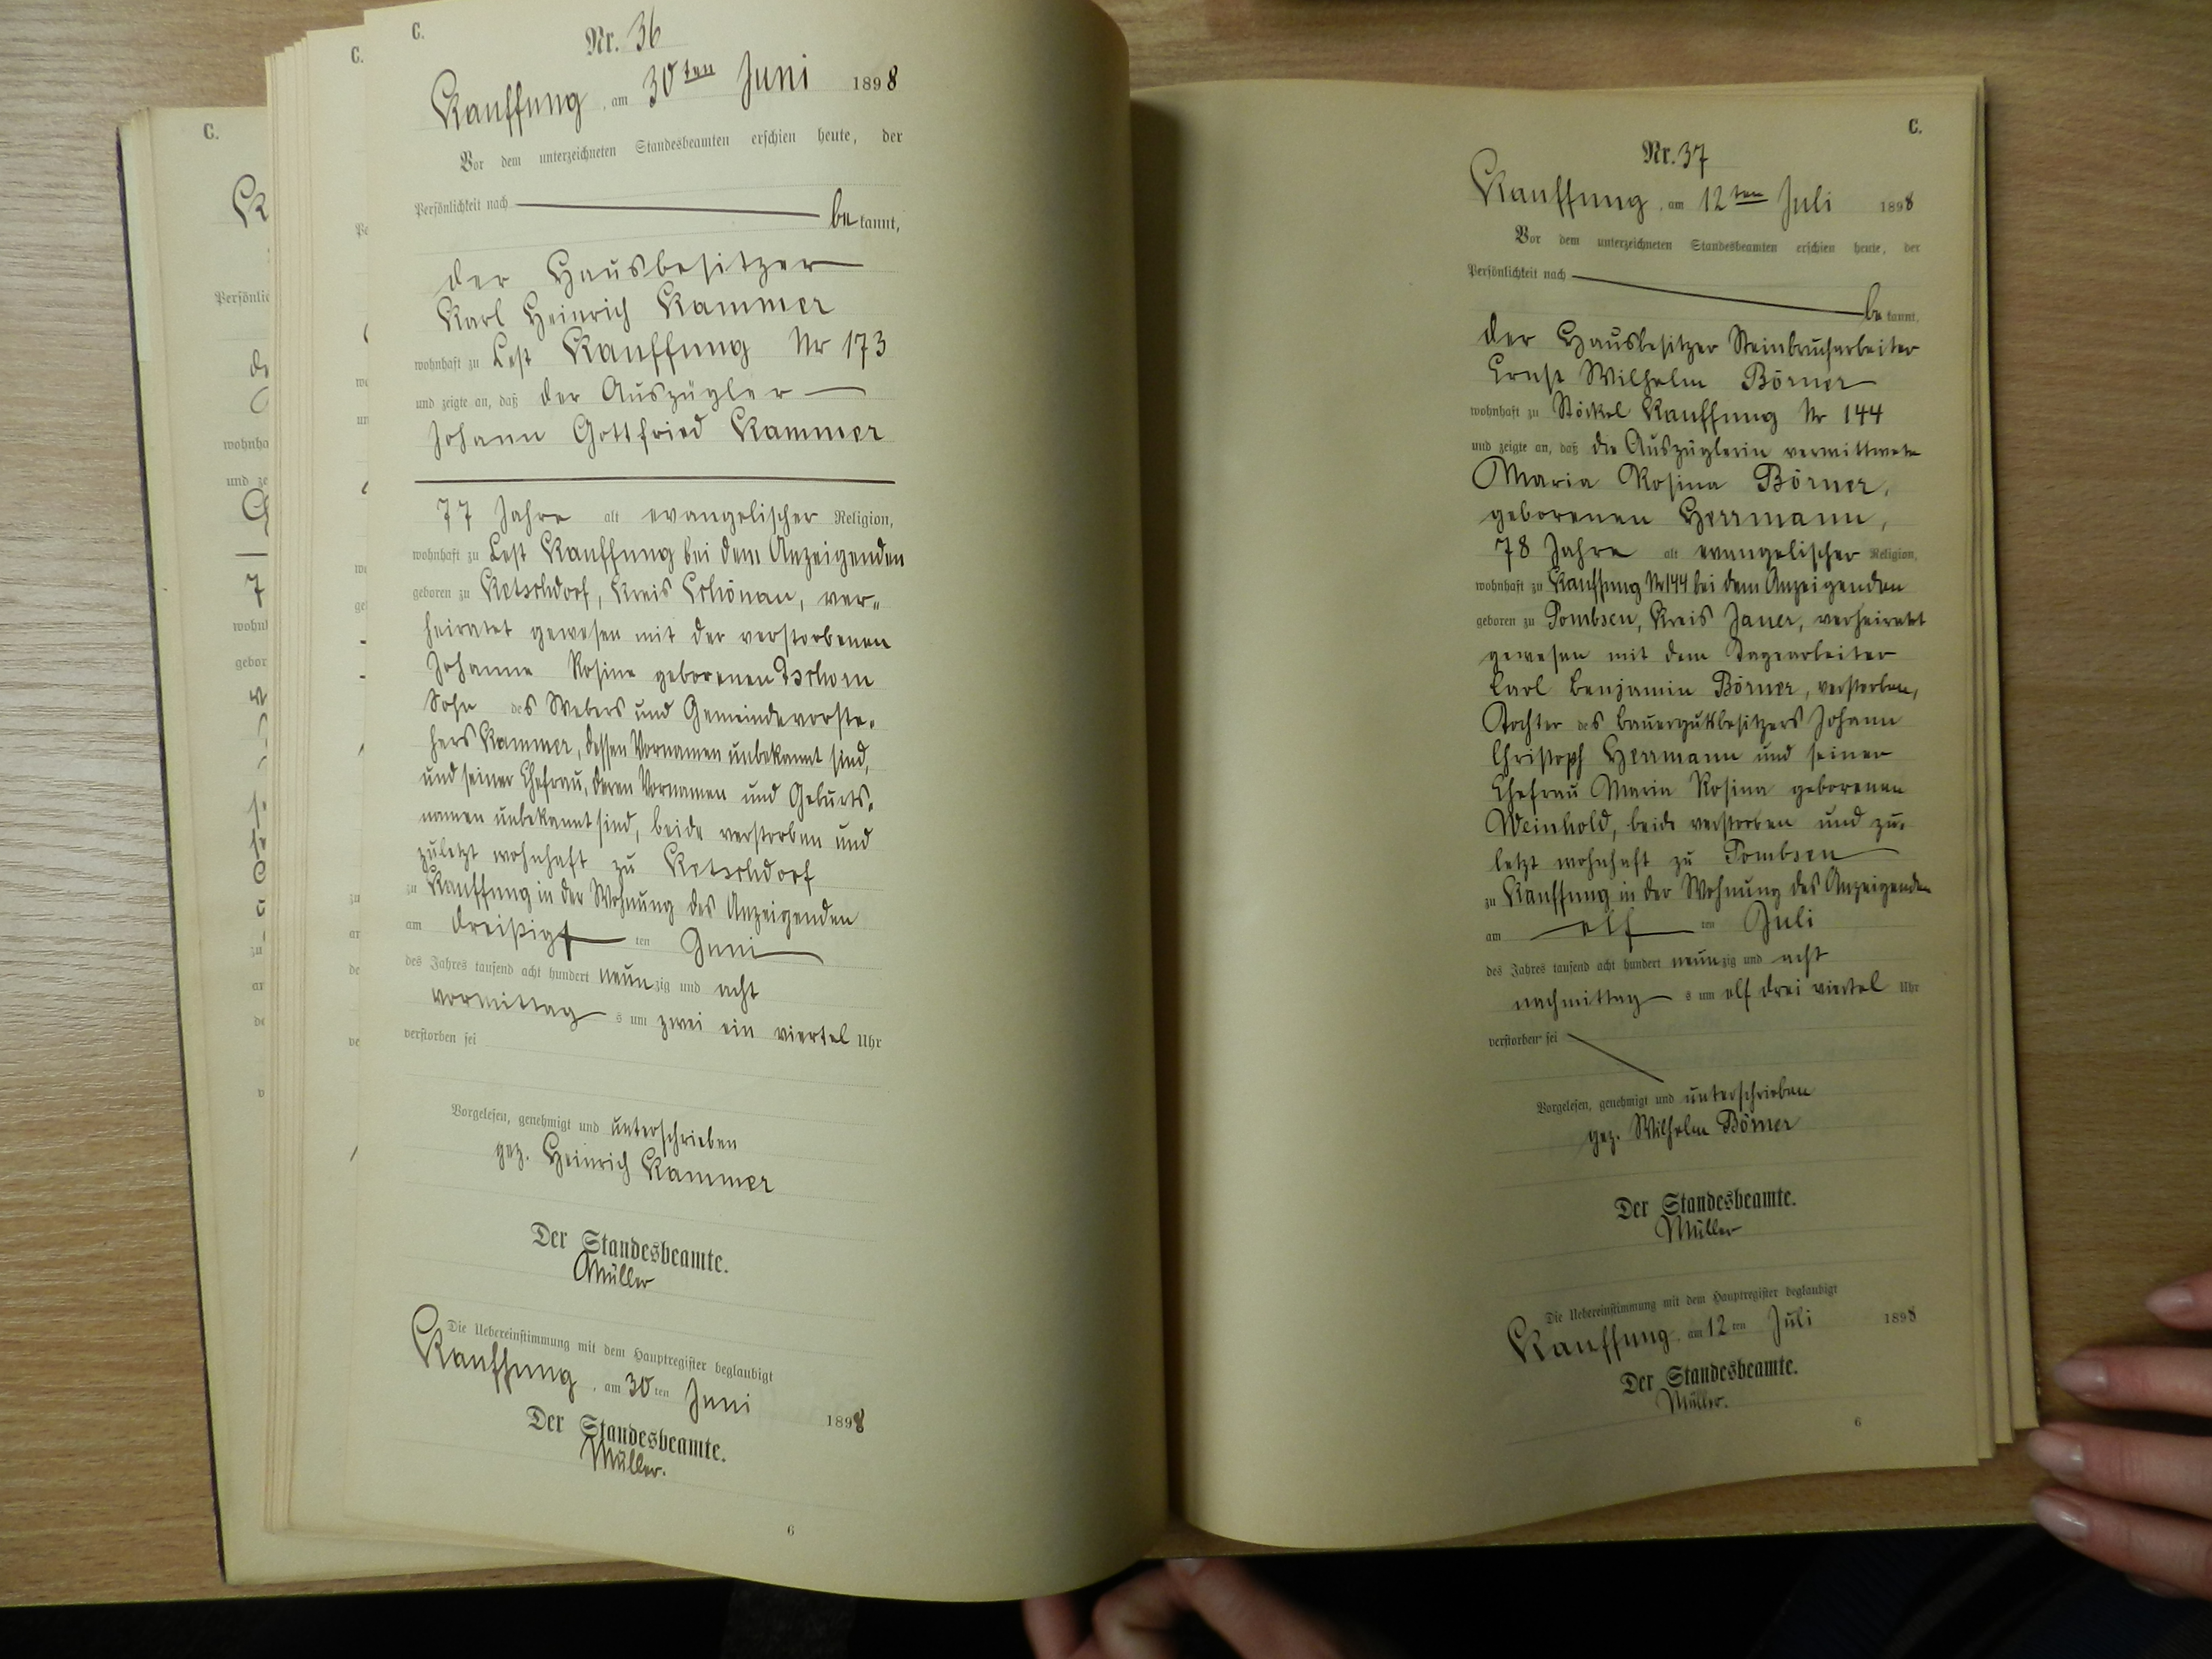 C.
Nr. 36
Kauffung, am 30ten Juni 1898
Vor dem unterzeichneten Standesbeamten erschien heute, der
Persönlichkeit nach
bekannt,
der Hausbesitzer
Karl Heinrich Kammer
wohnhaft zu Lest Kauffung Nr 173
und zeigte an, daß der Auszügler
Johann Gottfried Kammer
77 Jahre alt evangelischer Religion,
wohnhaft zu Lest Kauffung bei dem Anzeigenden
geboren zu Ketschdorf, Kreis Schönau, ver-
heiratet gewesen mit der verstorbenen
Johanne Rosine geborenen Tschorn
Sohn des Webers und Gemeindevorste-
hers Kammer, dessen Vornamen unbekannt sind,
und seiner Ehefrau, deren Vornamen und Geburts-
namen unbekannt sind, beide verstorben und
zuletzt wohnhaft zu Ketschdorf
zu Kauffung in der Wohnung des Anzeigenden
am dreißigsten Juni
des Jahres tausend acht hundert neunzig und acht
vormittags um zwei ein viertel Uhr
verstorben sei
Vorgelesen, genehmigt und unterschrieben
gez. Heinrich Kammer
Der Standesbeamte.
Müller
Die Uebereinstimmung mit dem Hauptregister beglaubigt
Kauffung, am 30ten Juni 1898
Der Standesbeamte.
Müller.
6
C.
Nr. 37
Kauffung, am 12ten Juli 1898
Vor dem unterzeichneten Standesbeamten erschien heute, der
Persönlichkeit nach
bekannt,
der Hausbesitzer Steinbrucharbeiter
Ernst Wilhelm Börner
wohnhaft zu Stöckel Kauffung Nr 144
und zeigte an, daß die Auszüglerin verwittwete
Maria Rosina Börner,
geborenen Herrmann,
78 Jahre alt evangelischer Religion,
wohnhaft zu Kauffung Nr 144 bei dem Anzeigenden
geboren zu Pombsen, Kreis Jauer, verheiratet
gewesen mit dem Tagearbeiter
Carl Benjamin Börner, verstorben,
Tochter des Bauergutsbesitzers Johann
Christoph Herrmann und seiner
Ehefrau Maria Rosina geborenen
Weinhold, beide verstorben und zu-
letzt wohnhaft zu Pombsen
zu Kauffung in der Wohnung des Anzeigenden
am elften Juli
des Jahres tausend acht hundert neunzig und acht
nachmittags um elf drei viertel Uhr
verstorben sei
Vorgelesen, genehmigt und unterschrieben
gez. Wilhelm Börner
Der Standesbeamte.
Müller
Die Uebereinstimmung mit dem Hauptregister beglaubigt
Kauffung, am 12ten Juli 1898
Der Standesbeamte.
Müller.
6